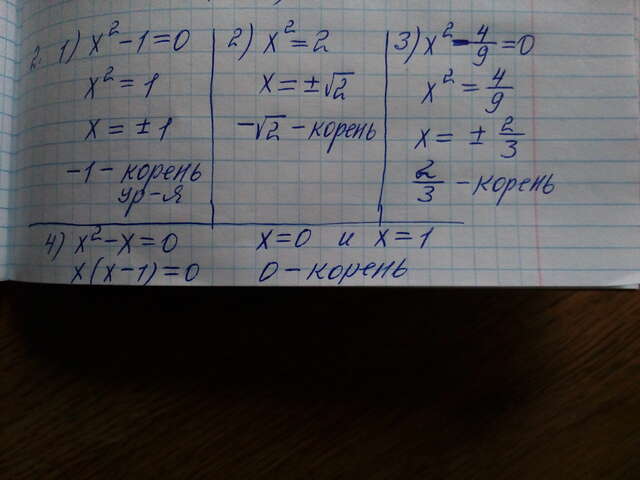 2. 1) x² - 1 = 0
x² = 1
x = ± 1
-1 - корень
ур-я
2) x² = 2
x = ± √2
-√2 - корень
3) x² - 4/9 = 0
x² = 4/9
x = ± 2/3
2/3 - корень
4) x² - x = 0
x(x - 1) = 0
x = 0 и x = 1
0 - корень